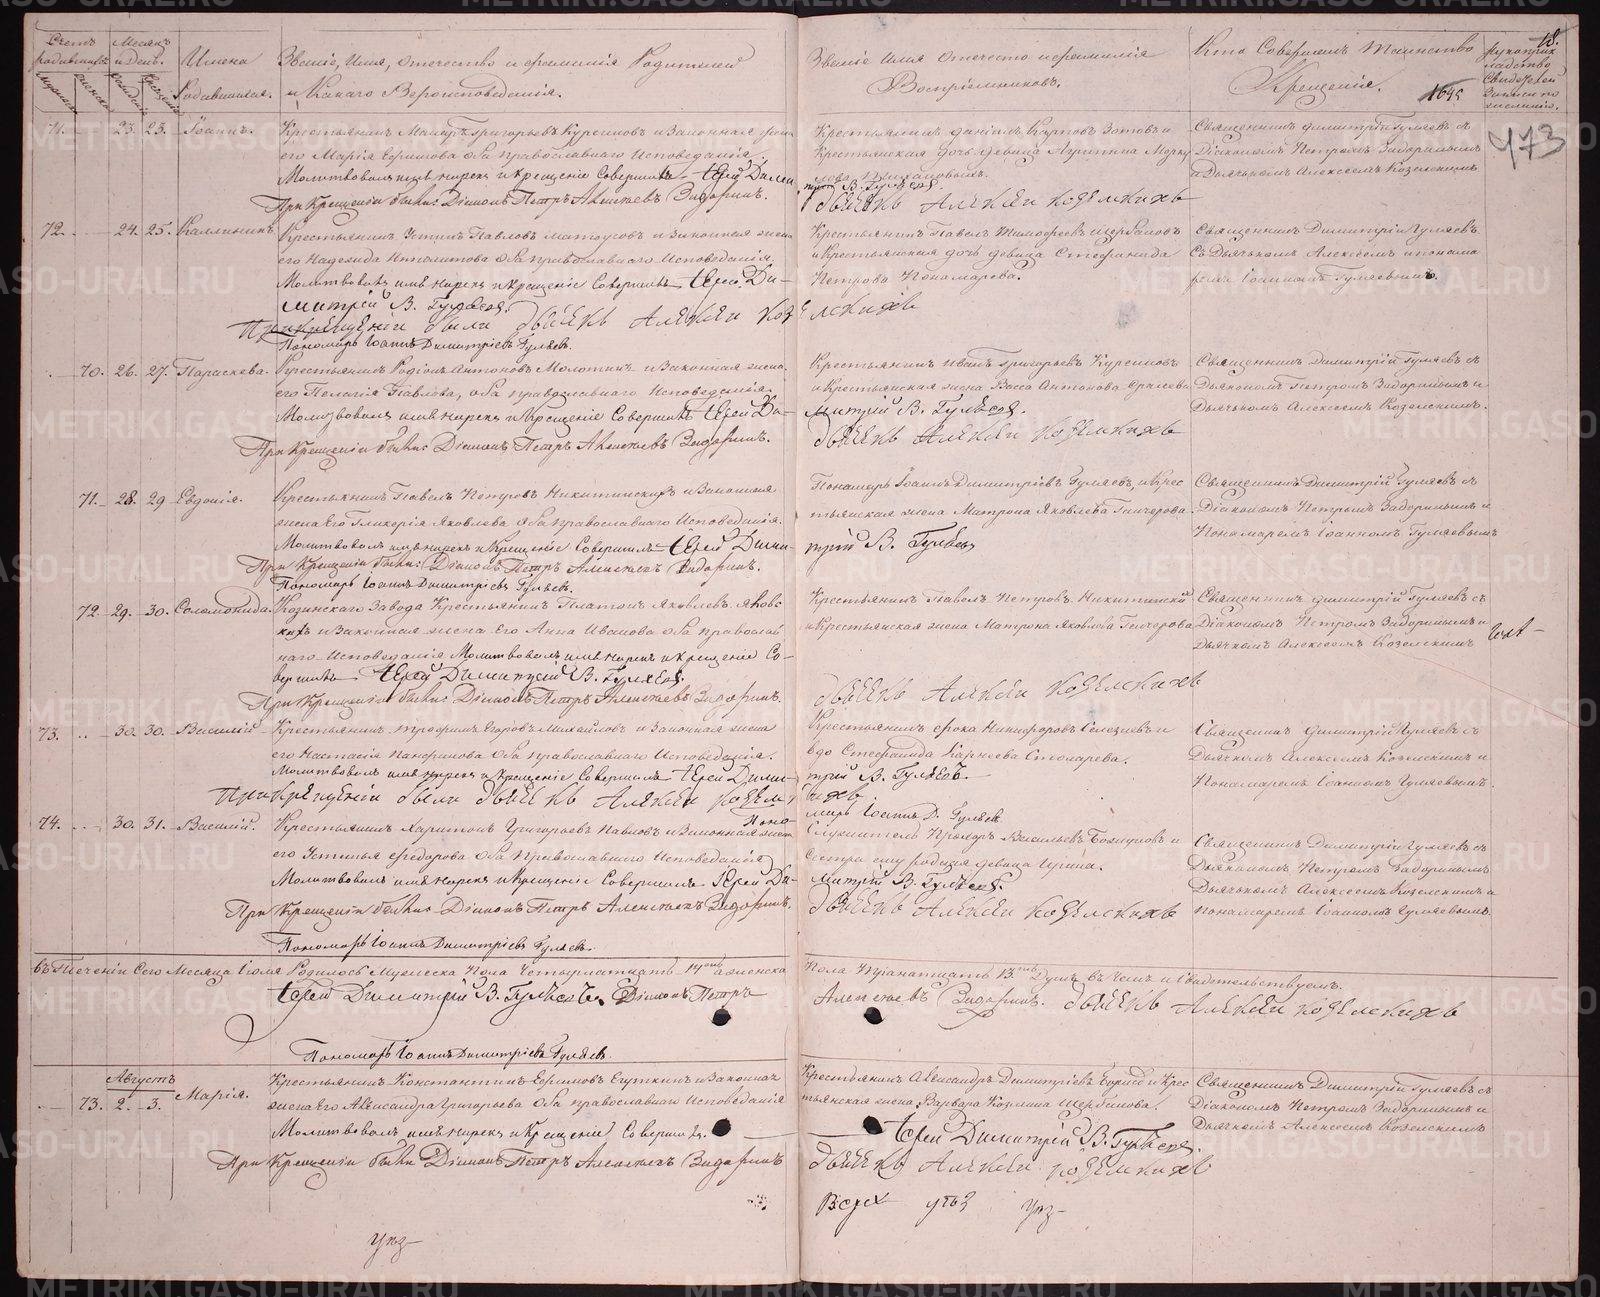 Счетъ родившихся
Месяцъ и День.
Имена Родившихся.
Званіе, Имя, отечество и фамилія Родителей
и Какаго Вероисповеданія.
Званіе Имя Отечество и фамилія
Воспріемниковъ.
Кто Совершалъ Таинство
Крещенія.
1645
18.
Рукоприкладство Свидетелей Записи по желанію.
473
71. 23. 23. Іоаннъ.
Крестьянинъ Макаръ Григорьевъ Курсиковъ и Законная жена
его Марія Ефимова оба православнаго Исповеданія
Молитвовалъ имя нарекъ и Крещеніе Совершилъ Іерей Дими
трій В. Гуляевъ.
При Крещеніи были: Діаконъ Петръ Алексѣевъ Задоринъ.
Дьячекъ Алексѣй Коземскихъ
Крестьянинъ Даніилъ Карповъ Зотовъ и
Крестьянская дочь девица
Священникъ Димитрій Гуляевъ съ
Діакономъ Петромъ Задоринымъ
и Дьячкомъ Алексеемъ Коземскимъ
72. 24. 25. Каллиникъ
Крестьянинъ Устинъ Павловъ Матоусовъ и Законная жена
его Надежда Ипполитова оба православнаго Исповеданія
Молитвовалъ имя нарекъ и Крещеніе Совершилъ Іерей Ди-
митрій В. Гуляевъ.
При крещеніи были Дьячекъ Алексѣй Коземскихъ
Пономарь Іоаннъ Димитріевъ Гуляевъ.
Крестьянинъ Павелъ Тимофеевъ Щербаковъ
и Крестьянская дочь девица Стефанида
Петрова Пономарева.
Священникъ Димитрій Гуляевъ
Съ Дьячкомъ Алексеемъ и понома
ремъ Іоанномъ Гуляевымъ.
70. 26. 27. Параскева.
Крестьянинъ Родіонъ Антоновъ Молоткинъ и Законная жена
его Пелагія Павлова, оба православнаго Исповеданія
Молитвовалъ имя нарекъ и Крещеніе Совершилъ Іерей Ди-
митрій В. Гуляевъ.
При Крещеніи были: Діаконъ Петръ Алексѣевъ Задоринъ.
Дьячекъ Алексѣй Коземскихъ
Крестьянинъ Иванъ Григорьевъ Курсиковъ
и Крестьянская жена Васса Антонова
Священникъ Димитрій Гуляевъ съ
Дьякономъ Петромъ Задоринымъ и
Дьячкомъ Алексеемъ Коземскимъ.
71. 28. 29 Евдокія.
Крестьянинъ Павелъ Петровъ Никитинскихъ и Законная
жена его Гликерія Яковлева оба православнаго Исповеданія.
Молитвовалъ имя нарекъ и Крещеніе Совершилъ Іерей Дими-
трій В. Гуляевъ
При Крещеніи были: Діаконъ Петръ Алексѣевъ Задоринъ.
Пономарь Іоаннъ Димитріевъ Гуляевъ.
Пономарь Іоаннъ Димитріевъ Гуляевъ, и Крес
тьянская жена Матрона Яковлева Гончерова
Священникъ Димитрій Гуляевъ съ
Діакономъ Петромъ Задоринымъ и
Пономаремъ Іоанномъ Гуляевымъ
72. 29. 30. Соломонида.
Козинскаго Завода Крестьянинъ Платонъ Яковлевъ Яковс
кихъ и Законная жена его Анна Иванова оба православ
наго Исповеданія Молитвовалъ имя нарекъ и крещеніе Со-
вершилъ Іерей Димитрій В. Гуляевъ.
При Крещеніи были: Діаконъ Петръ Алексѣевъ Задоринъ.
Дьячекъ Алексѣй Коземскихъ
Крестьянинъ Павелъ Петровъ Никитинской
и Крестьянская жена Матрона Яковлева Гончерова
Священникъ Димитрій Гуляевъ съ
Діакономъ Петромъ Задоринымъ и
Дьячкомъ Алексеемъ Коземскимъ
73. 30. 30. Василій
Крестьянинъ Трофимъ Егоровъ Михайловъ и Законная жена
его Настасія Панфилова оба православнаго Исповеданія.
Молитвовалъ имя нарекъ и крещеніе Совершилъ Іерей Дими-
трій В. Гуляевъ.
При крещеніи были Дьячекъ Алексѣй Коземскихъ
Поно-
марь Іоаннъ Д. Гуляевъ
Крестьянинъ Фока Никифоровъ Селезневъ и
вдо Стефанида Карпова Столарева.
Священникъ Димитрій Гуляевъ съ
Дьячкомъ Алексеемъ Коземскимъ и
Пономаремъ Іоанномъ Гуляевымъ.
74. 30. 31. Василій.
Крестьянинъ Харитонъ Григорьевъ Павловъ и Законная жена
его Устинья Федорова оба Православнаго Исповеданія
Молитвовалъ имя нарекъ и Крещеніе Совершилъ Іерей Ди-
митрій В. Гуляевъ.
При Крещеніи были: Діаконъ Петръ Алексѣевъ Задоринъ.
Дьячекъ Алексѣй Коземскихъ
Пономарь Іоаннъ Димитріевъ Гуляевъ.
Служителя Прохоръ Васильевъ и
Сестра ему родная девица Ирина.
Священникъ Димитрій Гуляевъ съ
Дьякономъ Петромъ Задоринымъ
Дьячкомъ Алексеемъ Коземскимъ и
пономаремъ Іоанномъ Гуляевымъ.
въ Теченіи Сего Месяца Іюля Родилось Мужеска Пола Четырнатцать 14ть а женска
Пола Тринатцать 13ть Душъ въ чемъ и Свидетельствуемъ.
Іерей Димитрій В. Гуляевъ. Діаконъ Петръ
Алексѣевъ Задоринъ. Дьячекъ Алексѣй Коземскихъ
Пономарь Іоаннъ Димитріевъ Гуляевъ
Августъ
73. 2. 3. Марія.
Крестьянинъ Константинъ Ефимовъ Егуткинъ и Законная
жена его Александра Григорьева оба православнаго Исповеданія
Молитвовалъ имя нарекъ и Крещеніе Совершилъ.
Іерей Димитрій В. Гуляевъ.
При Крещеніи были Діаконъ Петръ Алексѣевъ Задоринъ
Дьячекъ Алексѣй Коземскихъ
Крестьянинъ Александръ Димитріевъ и Крес
тьянская жена Варвара Козмина Щербакова.
Священникъ Димитрій Гуляевъ съ
Діакономъ Петромъ Задоринымъ и
Дьячкомъ Алексеемъ Коземскимъ
METRIKI.GASO-URAL.RU